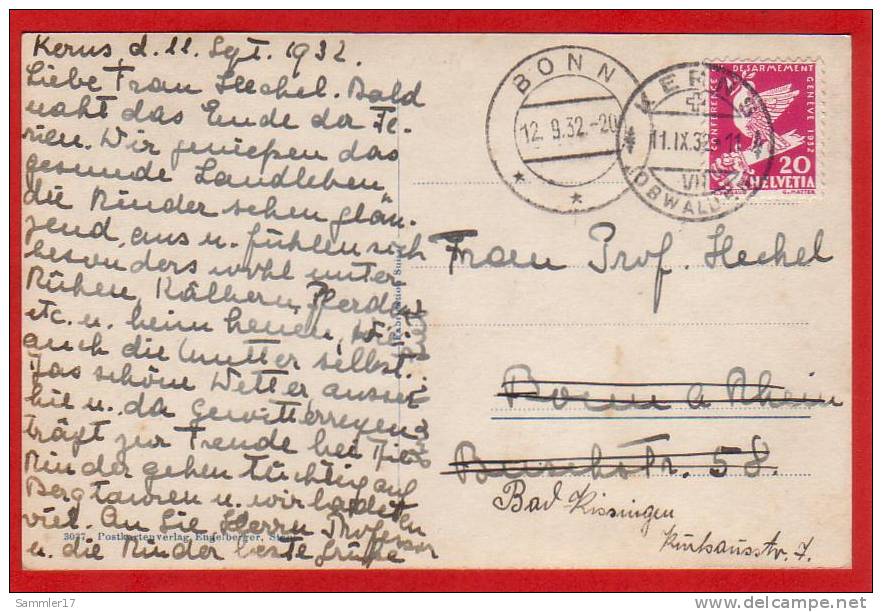 Kerns d. 11. Sept. 1932.
Liebe Frau Heckel. Bald
naht das Ende der Fe-
rien. Wir genießen das
gesunde Landleben,
die Kinder sehen glän-
zend aus u. fühlen sich
besonders wohl unter
Kühen, Kälbern, Pferden
etc. u. beim heuen, wie
auch die Mutter selbst.
Das schöne Wetter ausser
hie u. da Gewitterregen
trägt zur Freude bei. Die
Kinder gehen tüchtig auf
Bergtouren u. wir baden
viel. An Sie Herrn Professor
u. die Kinder beste Grüße
3077 Postkartenverlag Engelberger,
BONN
12.9.32.-20
KERNS
11.IX.32.-11
(OBWALDEN)
CONFERENCE DU DESARMEMENT GENÈVE 1932
20
HELVETIA
Frau Prof. Heckel
Bonn a Rhein
58.
Bad Kissingen
Kurhausstr. 7.
Sammler17
www.delcampe.net